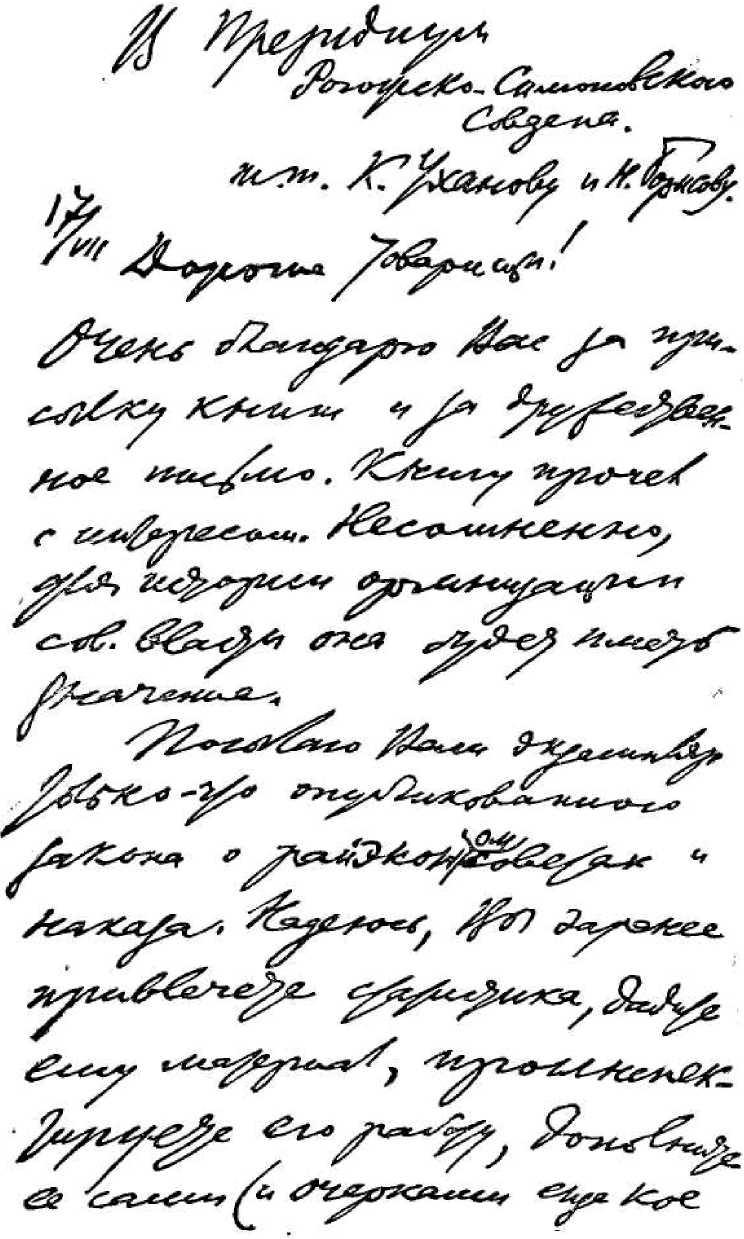 В Президиум
Рогожско-Симоновского
Совдепа.
т.т. К. Уханову и Н. Борисову.
17/VII
Дорогие товарищи!
Очень благодарю Вас за при-
сылку книги и за дружествен-
ное письмо. Книгу прочел
с интересом. Несомненно,
для истории организации
сов. власти она будет иметь
значение.
Посылаю Вам экземпляр
только-что опубликованного
закона о райэконом совещах и
наказа. Надеюсь, Вы заранее
привлечете статистика, дадите
ему материал, проинспек-
тируете его работу, дополните
ее сами (и очерками еще кое